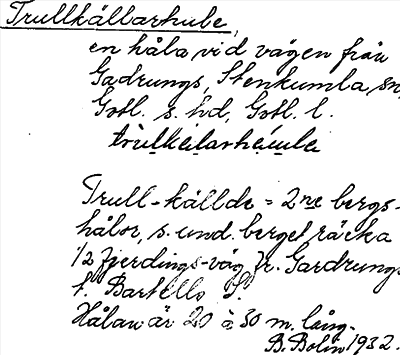 Trullkällarhule,
en håla vid vägen från
Gadrungs, Stenkumla sn,
Gotl. s. hd, Gotl. l.
Trull-källde = 2ne bergs-
hålor, s. und. berget räcka
1/2 fjerdings-väg fr. Gardrungs
t. Bartells S.
Hålan är 20 à 30 m. lång.
B. Bolin 1932.